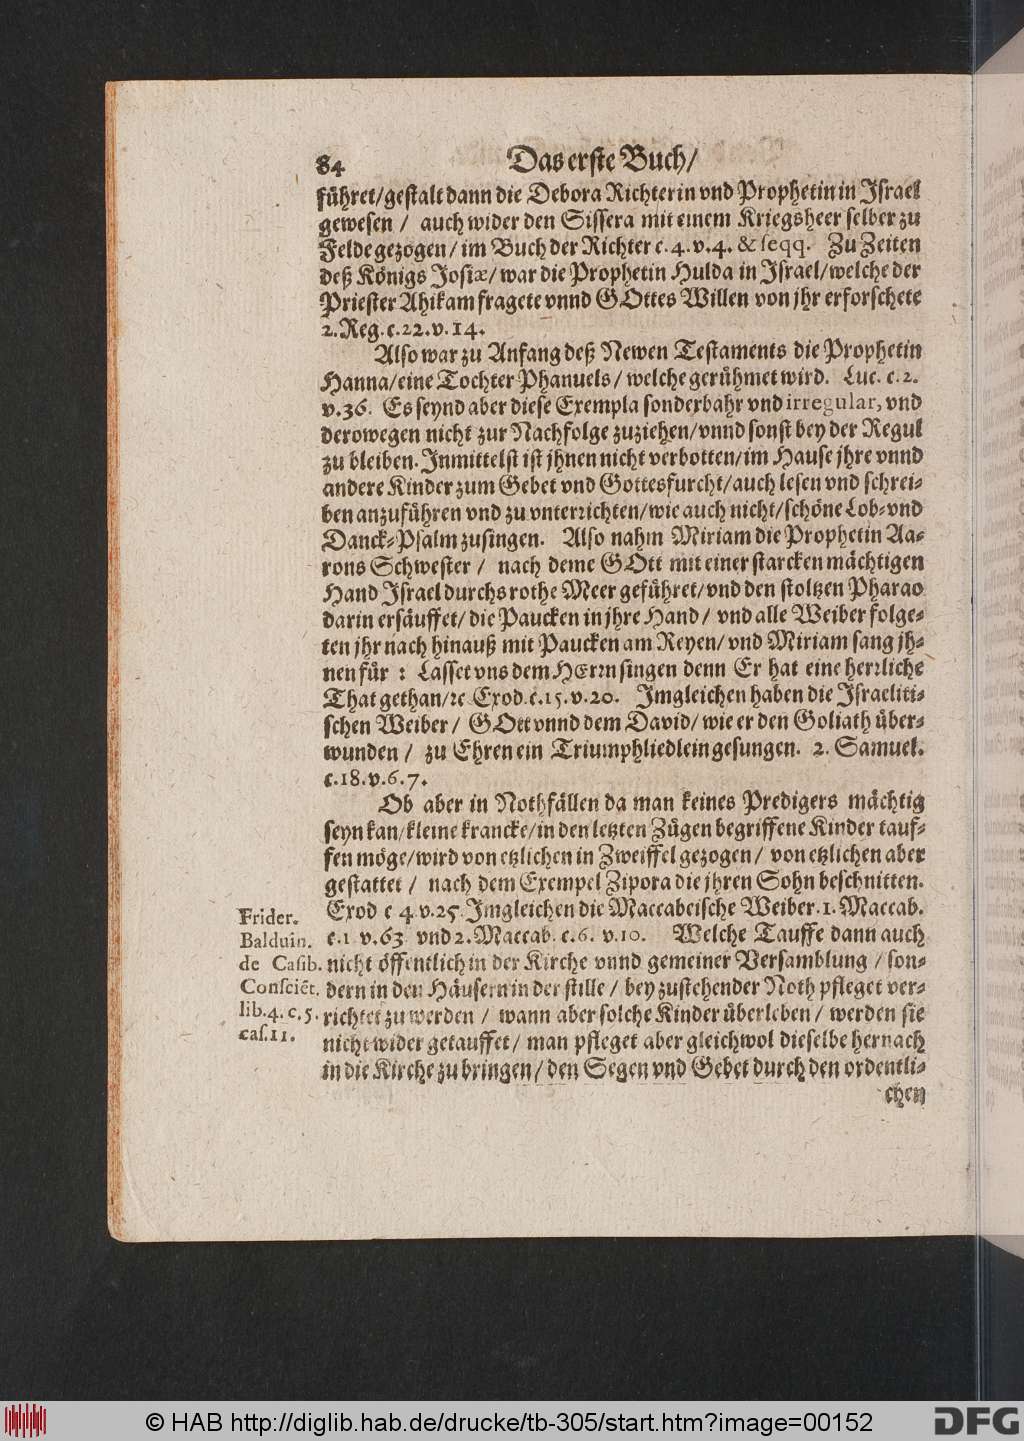 84 Das erste Buch/
führet/gestalt dann die Debora Richterin vnd Prophetin in Jsrael
gewesen / auch wider den Sissera mit einem Kriegsheer selber zu
Felde gezogen/ im Buch der Richter c. 4. v. 4. & seqq. Zu Zeiten
deß Königs Josiæ/ war die Prophetin Hulda in Jsrael/welche der
Priester Ahikam fragete vnnd GOttes Willen von jhr erforschete
2. Reg. c. 22. v. 14.
Also war zu Anfang deß Newen Testaments die Prophetin
Hanna/eine Tochter Phanuels/ welche gerühmet wird. Luc. c. 2.
v. 36. Es seynd aber diese Exempla sonderbahr vnd irregular, vnd
derowegen nicht zur Nachfolge zuziehen/vnnd sonst bey der Regul
zu bleiben. Inmittelst ist jhnen nicht verbotten/im Hause jhre vnnd
andere Kinder zum Gebet vnd Gottesfurcht/auch lesen vnd schrei-
ben anzuführen vnd zu vnterrichten/wie auch nicht/schöne Lob- vnd
Danck-Psalm zusingen. Also nahm Miriam die Prophetin Aa-
rons Schwester / nach deme GOtt mit einer starcken mächtigen
Hand Jsrael durchs rothe Meer geführet/vnd den stoltzen Pharao
darin ersäuffet/ die Paucken in jhre Hand/ vnd alle Weiber folge-
ten jhr nach hinauß mit Paucken am Reyen/ vnd Miriam sang jh-
nen für : Lasset vns dem HErrn singen denn Er hat eine herrliche
That gethan/ꝛc Exod. c. 15. v. 20. Imgleichen haben die Jsraeliti-
schen Weiber/ GOtt vnnd dem David/ wie er den Goliath über-
wunden / zu Ehren ein Triumphliedlein gesungen. 2. Samuel.
c. 18. v. 6. 7.
Ob aber in Nothfällen da man keines Predigers mächtig
seyn kan/kleine krancke/in den letzten Zügen begriffene Kinder tauf-
fen möge/wird von etzlichen in Zweiffel gezogen/ von etzlichen aber
gestattet / nach dem Exempel Zipora die jhren Sohn beschnitten.
Exod c 4. v. 25. Imgleichen die Maccabeische Weiber. 1. Maccab.
c. 1 v. 63 vnd 2. Maccab. c. 6. v. 10. Welche Tauffe dann auch
nicht öffentlich in der Kirche vnnd gemeiner Versamblung / son-
dern in den Häusern in der stille / bey zustehender Noth pfleget ver-
richtet zu werden / wann aber solche Kinder überleben/ werden sie
nicht wider getauffet/ man pfleget aber gleichwol dieselbe hernach
in die Kirche zu bringen/ den Segen vnd Gebet durch den ordentli-
chen
Frider.
Balduin.
de Casib.
Consciēt.
lib. 4. c. 5.
cas. 11.
© HAB http://diglib.hab.de/drucke/tb-305/start.htm?image=00152
DFG